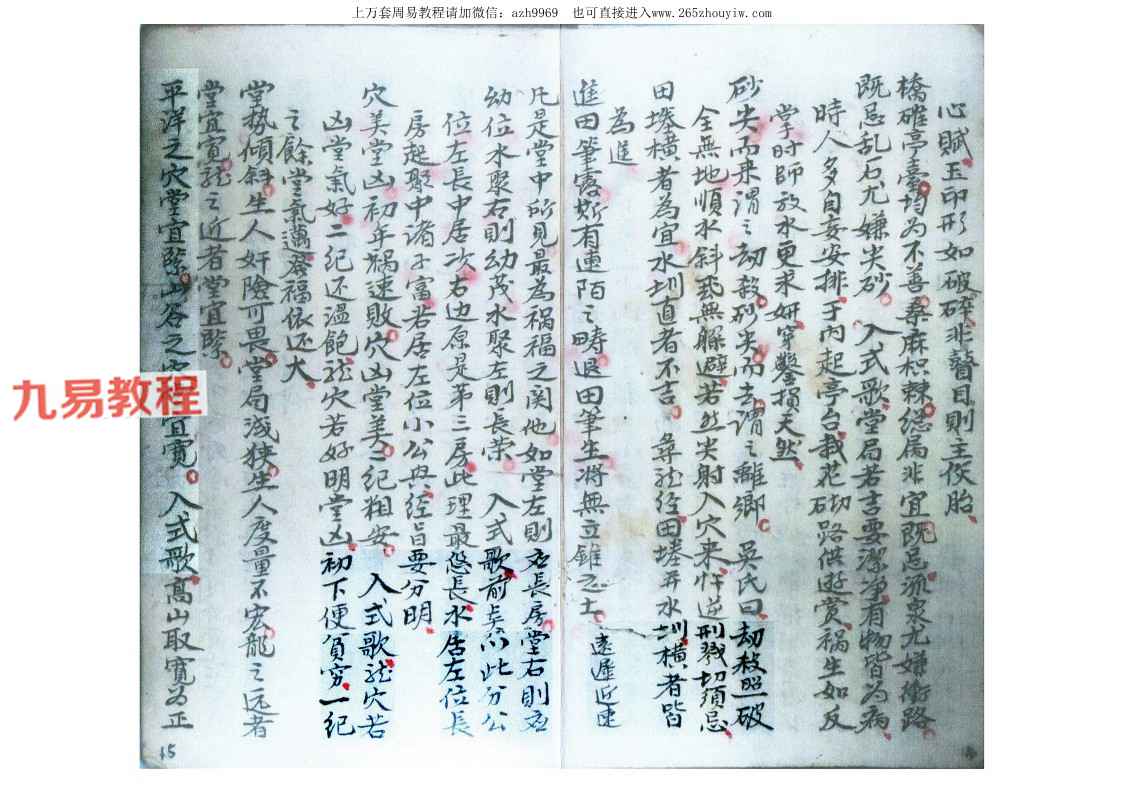 上万套周易教程请加微信：azh9969　也可直接进入www.265zhouyiw.com
心賦玉印形如破碎非瞽目則主伕胎
橋確亭臺均为不善桑麻枳棘总属非宜既忌流泉尤嫌衝路
既忌乱石尤嫌尖砂　入式歌堂局若言要潔净有物皆为病
時人多自妄安排于内起亭台栽花砌路供遊赏禍生如反
掌时師放水更求妍穿鑿損天然
砂尖而来謂之刧殺砂尖而去謂之離鄉　吳氏曰刧殺照破
全無地順水斜飛無躲避若然尖射入穴来忤逆刑戮切須忌
田塍横者為宜水圳直者不吉　龙经田塍弄水圳横者皆
為進
進田筆露斯有連陌之畴退田筆生将無立錐之土　遠遲近速
凡是堂中所見最為祸福之関他如堂左則应長房堂右則应
幼位水聚右則幼茂水聚左則長荣　入式歌前具你此分公
位左長中居次右边原是第三房此理最悠長水居左位長
房起聚中诸子富若居左位小公兴经旨要分明
穴美堂凶初年祸速敗穴凶堂美一紀粗安　入式歌龙穴若
凶堂氣好二纪还温飽龙穴若好明堂凶初下便負穷一纪
之餘堂氣邁發福依还大
堂势傾斜生人奸險可畏堂局浅狭生人度量不宏龍之远者
堂宜寛龙之近者堂宜緊
平洋之穴堂宜緊山谷之穴宜寛　入式歌高山取寛为正
九易教程
15